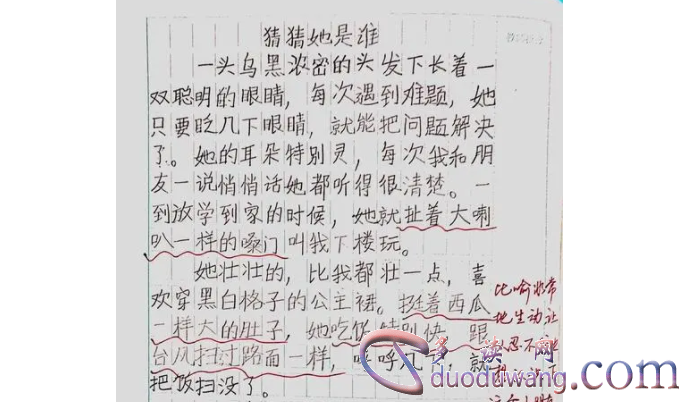 猜猜她是谁
一头乌黑浓密的头发下长着一
双聪明的眼睛，每次遇到难题，她
只要眨几下眼睛，就能把问题解决
了。她的耳朵特别灵，每次我和朋
友一说悄悄话她都听得很清楚。一
到放学到家的时候，她就扯着大喇
叭一样的嗓门叫我下楼玩。
她壮壮的，比我都壮一点，喜
欢穿黑白格子的公主裙。挺着西瓜
一样大的肚子，她吃饭特别快，跟
台风扫过路面一样，呼呼几下，就
把饭扫没了。
比喻非常
地生动让
人忍不住
多读网
duoduwang.com